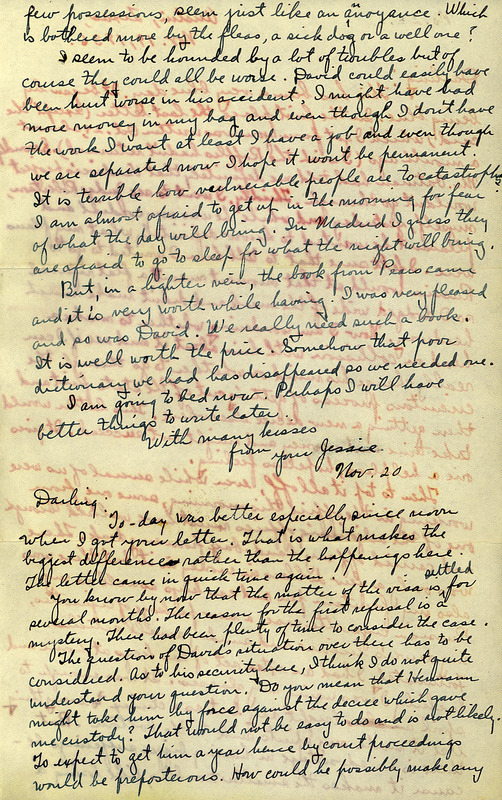 few possessions, seem just like an annoyance. Which
is bothered more by the fleas, a sick dog or a well one?
I seem to be hounded by a lot of troubles but of
couse they could all be worse. David could easily have
been hurt worse in his accident, I might have had
more money in my bag and even though I don't have
the work I want at least I have a job and even though
we are separated now I hope it won't be permanent.
It is terrible how vulnerable people are to catastrophe.
I am almost afraid to get up in the morning for fear
of what the day will bring. In Madrid I guess they
are afraid to go to sleep for what the night will bring.
But, in a lighter vein, the book from Pears came
and it is very worth while having. I was very pleased
and so was David. We really need such a book.
It is well worth the price. Somehow that poor
dictionary we had has disappeared so we needed one.
I am going to bed now. Perhaps I will have
better things to write later.
With many kisses
from your Jessie.
Nov. 20
Darling:
To-day was better especially since noon
when I got your letter. That is what makes the
biggest difference rather than the happenings here.
The letter came in quick time again.
You know by now that the matter of the visa is settled for
several months. The reason for the first refusal is a
mystery. There had been plenty of time to consider the case.
The question of David's situation over there has to be
considered. As to his security here, I think I do not quite
understand your question. Do you mean that Hermann
might take him by force against the decree which gave
me custody? That would not be easy to do and is not likely.
To expect to get him a year hence by court proceedings
would be preposterous. How could he possibly make any